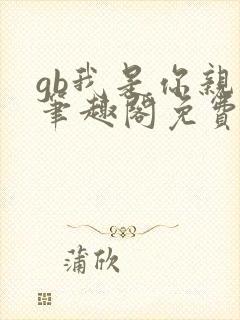 gb我是你親
筆趣閣免費
蒲欣